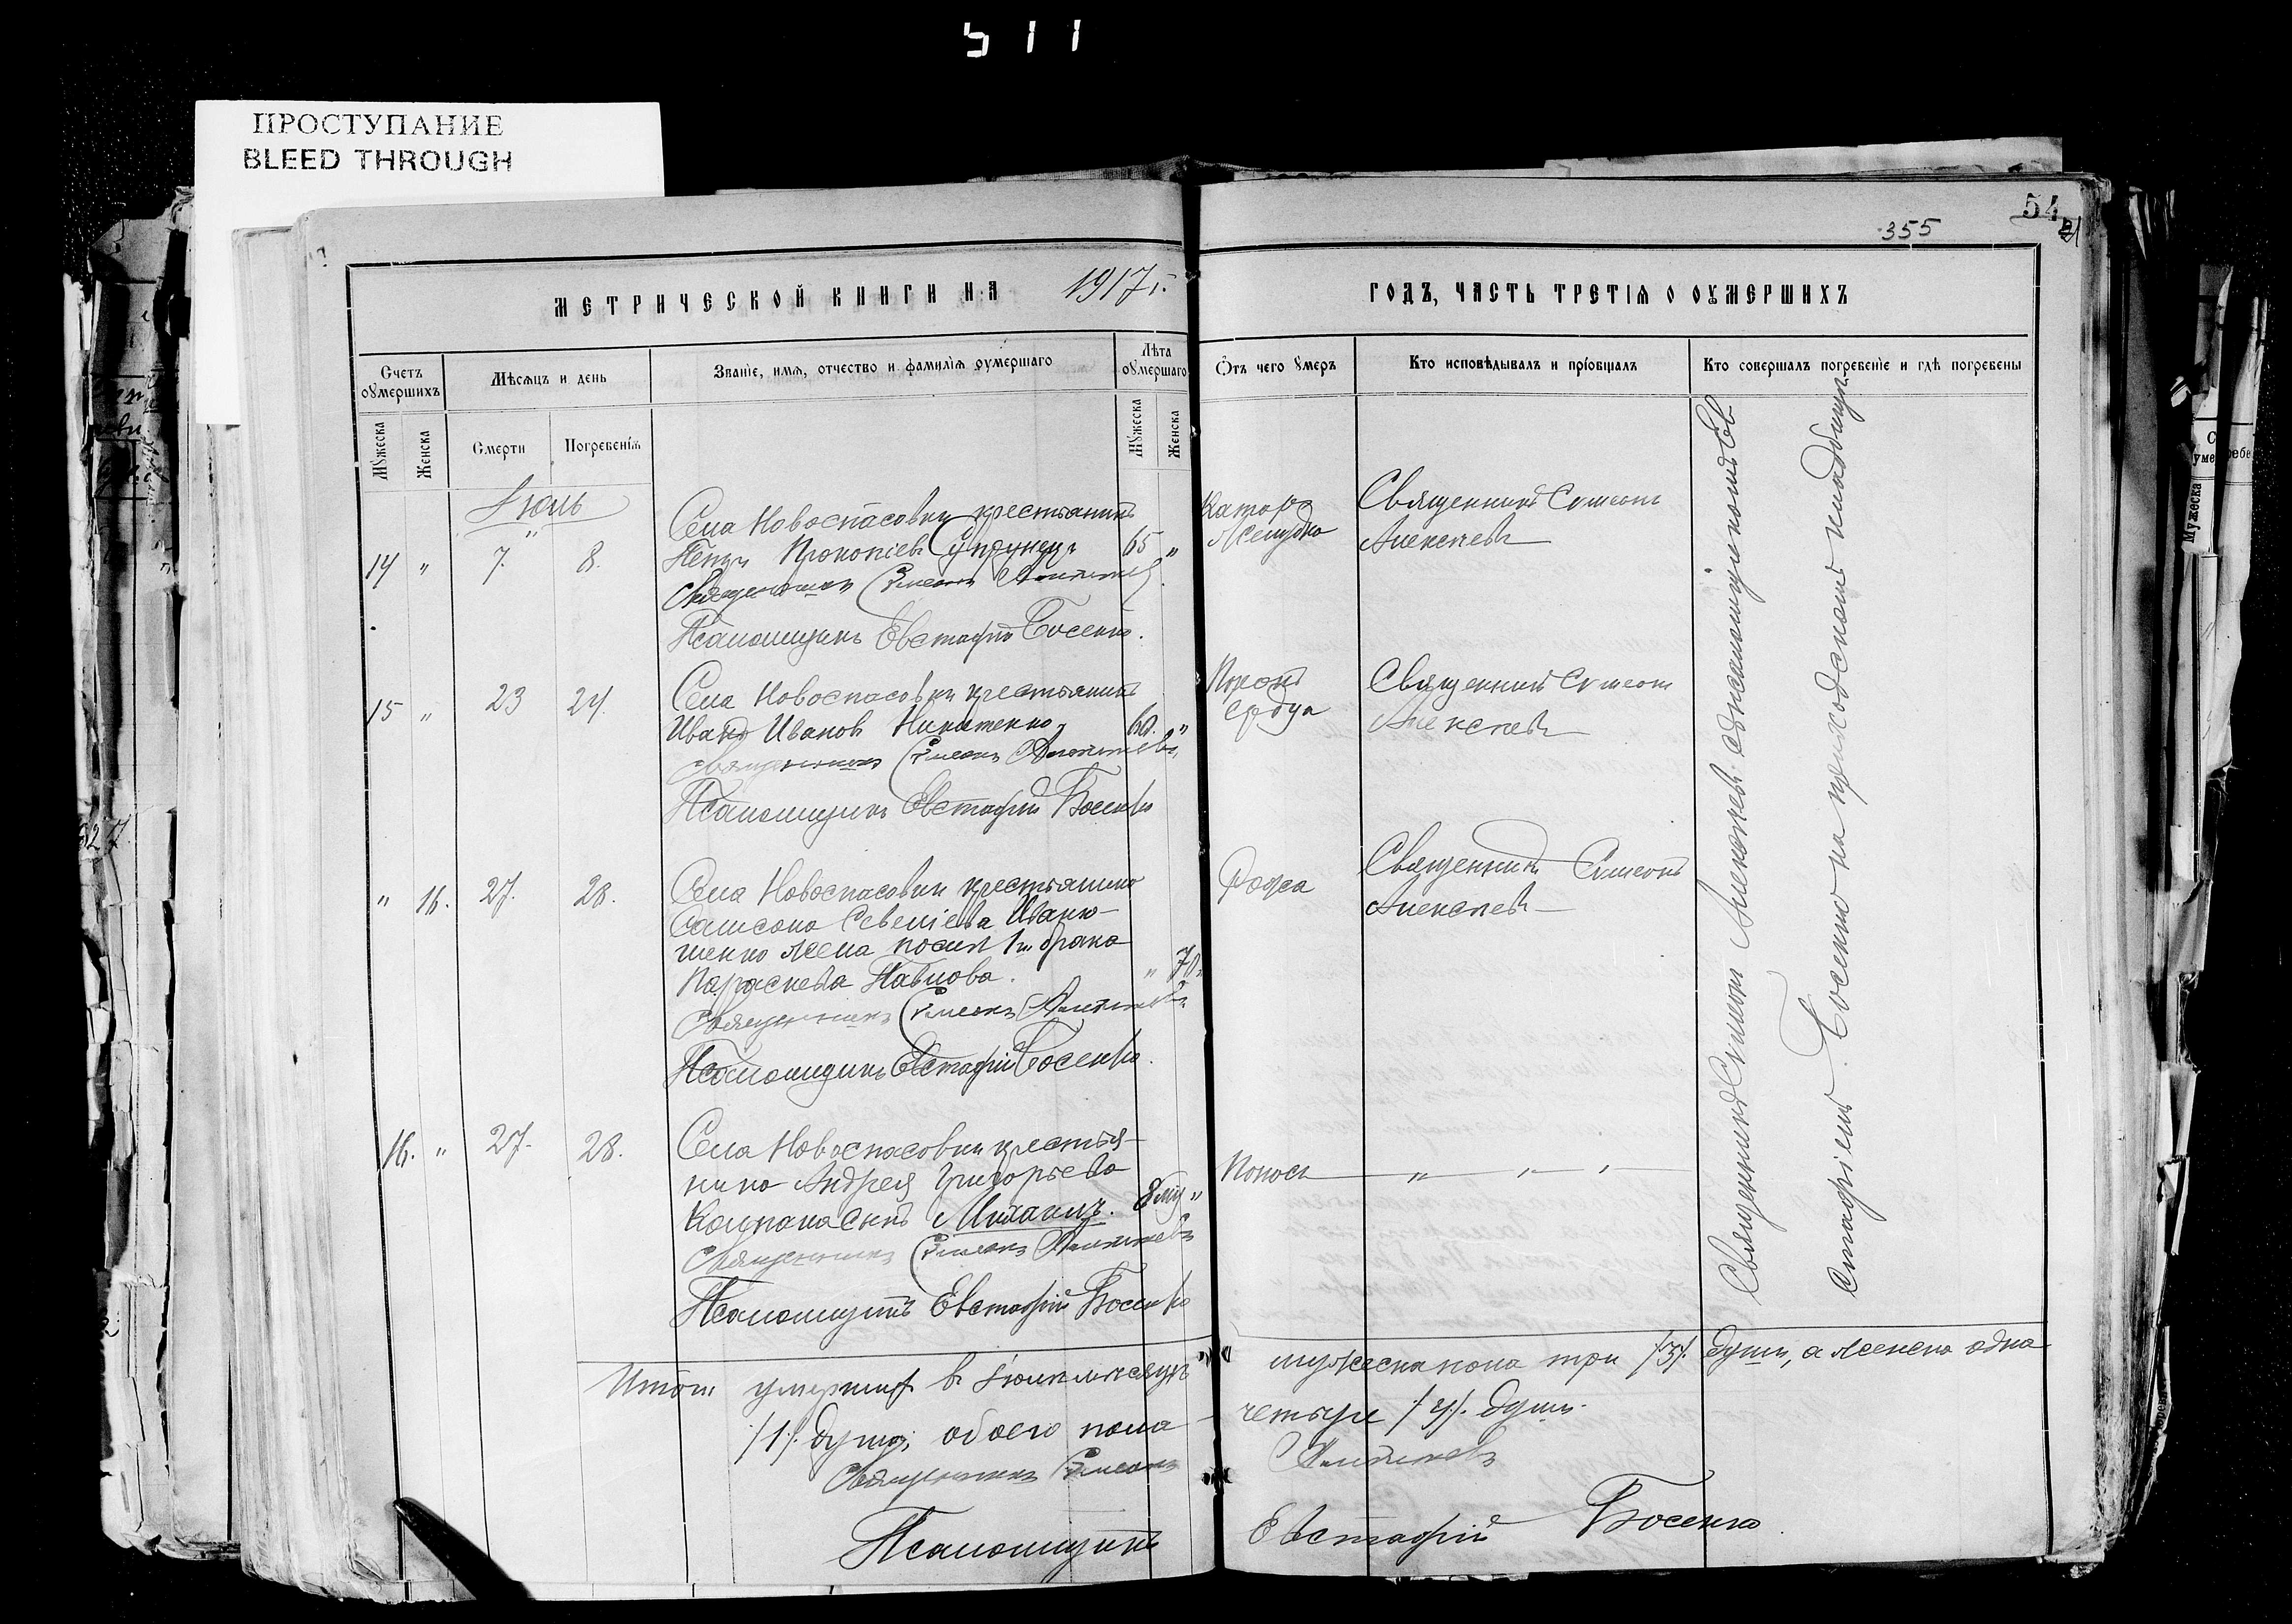 511
ПРОСТУПАНИЕ
BLEED THROUGH
54
355
МЕТРИЧЕСКОЙ КНИГИ НА 1917 г.
ГОДЪ, ЧАСТЬ ТРЕТІЯ О ОУМЕРШИХЪ
Счетъ оумершихъ
Мѣсяцъ и день
Званіе, имя, отчество и фамилія оумершаго
Лѣта оумершаго
Отъ чего умеръ
Кто исповѣдывалъ и пріобщалъ
Кто совершалъ погребеніе и гдѣ погребены
Мужеска
Женска
Смерти
Погребенія
Мужеска
Женска
Іюль
14 " 7. 8.
Села Новоспасовки крестьянинъ
Петръ Прокопіевъ Супрунецъ 65 "
Священникъ Симеонъ Алексѣевъ
Псаломщикъ Евстафій Босенко.
Катаръ
желудка
Священникъ Симеонъ
Алексѣевъ
15 " 23 24.
Села Новоспасовки крестьянинъ
Иванъ Ивановъ Никитенко 60. "
Священникъ Симеонъ Алексѣевъ
Псаломщикъ Евстафій Босенко
Порокъ
сердца
Священникъ Симеонъ
Алексѣевъ
" 16. 27. 28.
Села Новоспасовки крестьянина
Самсона Савеліева Иваню-
шенко жена послѣ 1го брака
Параскева Павлова. " 70.
Священникъ Симеонъ Алексѣевъ
Псаломщикъ Евстафій Босенко.
Рожа
Священникъ Симеонъ
Алексѣевъ
16. " 27. 28.
Села Новоспасовки крестья-
нина Андрея Григорьева
Колпака сынъ Михаилъ. 8 мц "
Священникъ Симеонъ Алексѣевъ
Псаломщикъ Евстафій Босенко
Поносъ " " "
Священникъ Симеонъ Алексѣевъ съ псаломщикомъ Ев
стафіемъ Босенко на приходскомъ кладбищѣ
Итого умершихъ въ Іюлѣ мѣсяцѣ мужеска пола три /3/. души, а женска одна
/1/. душа; обоего пола четыре /4/. души.
Священникъ Симеонъ Алексѣевъ
Псаломщикъ Евстафій Босенко